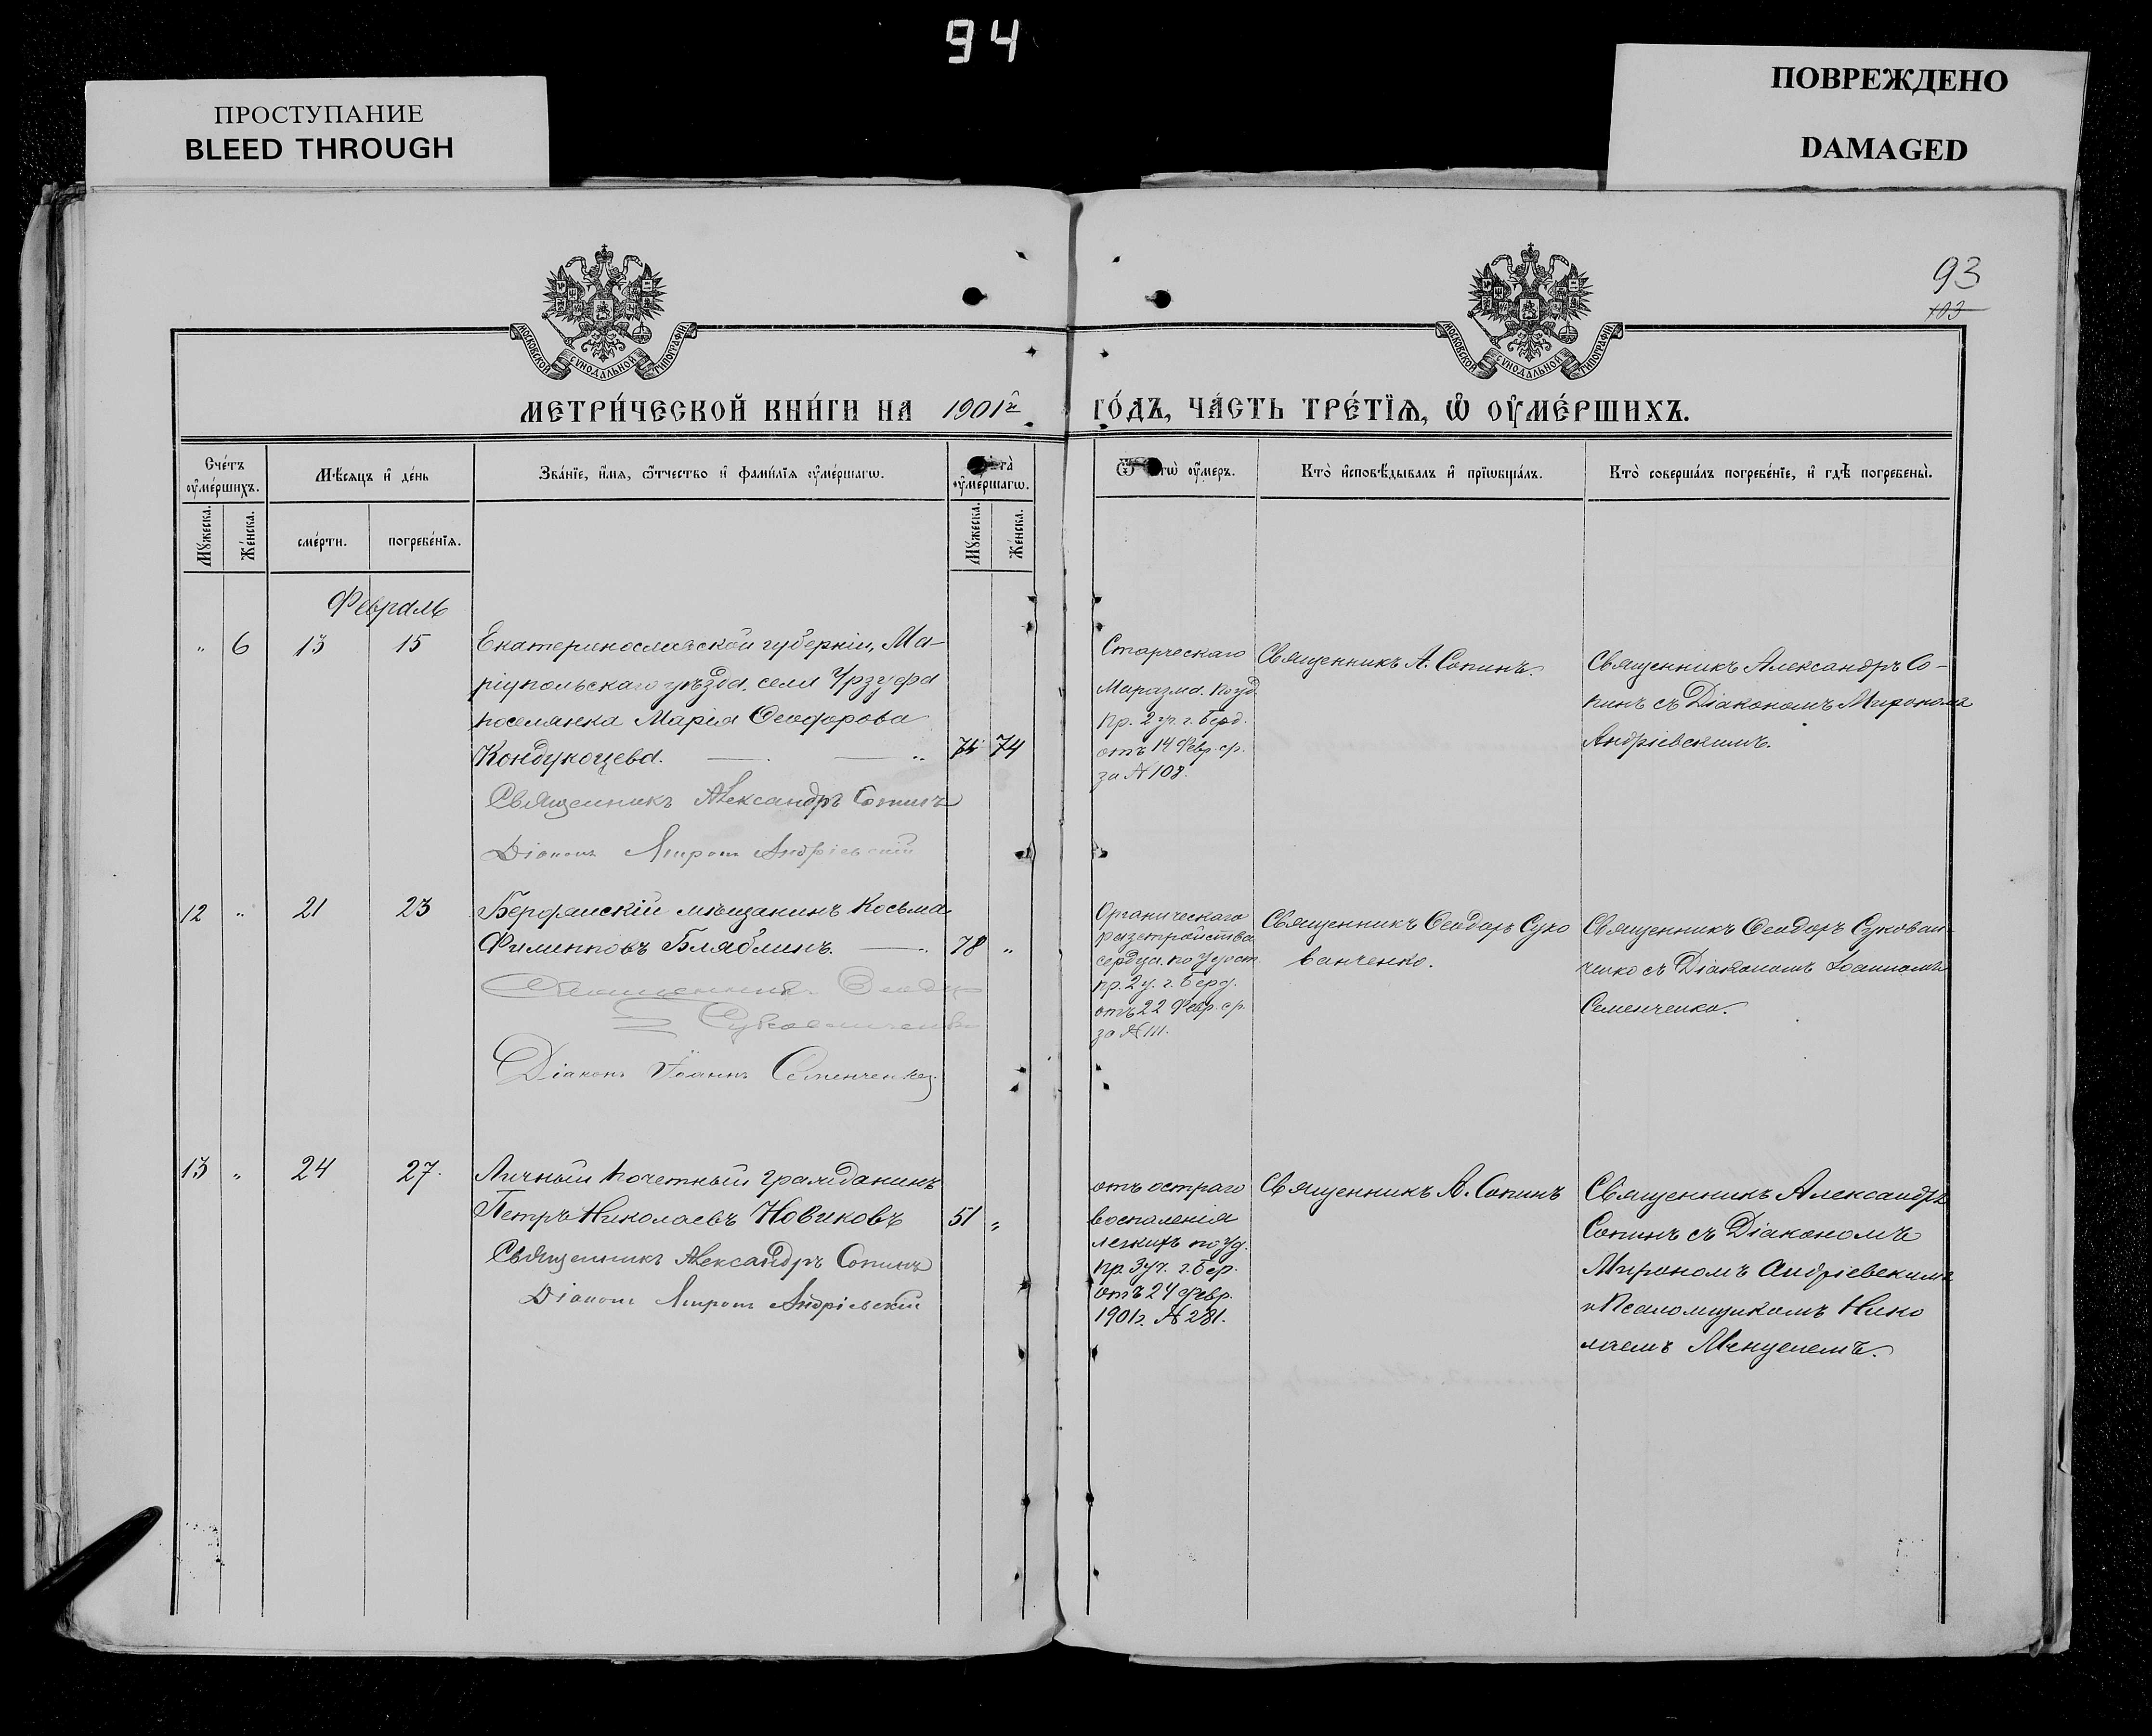 94
ПРОСТУПАНИЕ
BLEED THROUGH
ПОВРЕЖДЕНО
DAMAGED
93
103
МОСКОВСКОЙ СУНОДАЛЬНОЙ ТИПОГРАФІИ
МОСКОВСКОЙ СУНОДАЛЬНОЙ ТИПОГРАФІИ
МЕТРИ́ЧЕСКОЙ КНИ́ГИ НА 1901й ГО́ДЪ, ЧА́СТЬ ТРЕ́ТЇѦ, Ѡ ОУ҆МЕ́РШИХЪ.
Сче́тъ оу҆ме́ршихъ.
Мѣ́сѧцъ и҆ де́нь
Зва́нїе, и҆́мѧ, ѻ҆́тчество и҆ фами́лїѧ оу҆ме́ршагѡ.
оу҆ме́ршагѡ.
оу҆́меръ.
Кто̀ и҆сповѣ́дывалъ и҆ прїѡбща́лъ.
Кто̀ соверша́лъ погребе́нїе, и҆ гдѣ̀ погребены̀.
Мꙋ́жеска.
Же́нска.
сме́рти.
погребе́нїѧ.
Мꙋ́жеска.
Же́нска.
Февраль
„ 6 13 15
Екатеринославской губерніи, Ма-
ріупольскаго уѣзда, села Урзуфа
поселянка Марія Ѳеодорова
Кондукоцева. — — „ 74 74
Священникъ Александръ Сопинъ
Діаконъ Миронъ Андріевскій
Старческаго
Маразма. по уд.
пр. 2 уч. г. Берд.
отъ 14 Февр. ср.
за № 108.
Священникъ А. Сопинъ.
Священникъ Александръ Со-
пинъ съ Діакономъ Мирономъ
Андріевскимъ.
12 „ 21 23
Бердянскій мѣщанинъ Косьма
Филипповъ Бляблинъ. — 78 „
Священникъ Ѳеодоръ
Сукованченко
Діаконъ Іоаннъ Семенченко.
Органическаго
разстройства
сердца. по удост.
пр. 2 у. г. Берд.
отъ 22 Февр. ср.
за № 111.
Священникъ Ѳеодоръ Суко
ванченко.
Священникъ Ѳеодоръ Сукован-
ченко съ Діакономъ Іоанномъ
Семенченко.
13 „ 24 27.
Личный почетный гражданинъ
Петръ Николаевъ Новиковъ 51 „
Священникъ Александръ Сопинъ
Діаконъ Миронъ Андріевскій
отъ остраго
воспаленія
легкихъ по уд.
пр. 3 уч. г. Бер.
отъ 24 Февр.
1901 г. № 281.
Священникъ А. Сопинъ
Священникъ Александръ
Сопинъ съ Діакономъ
Мирономъ Андріевскимъ
и Псаломщикомъ Нико
лаемъ Менцелемъ.